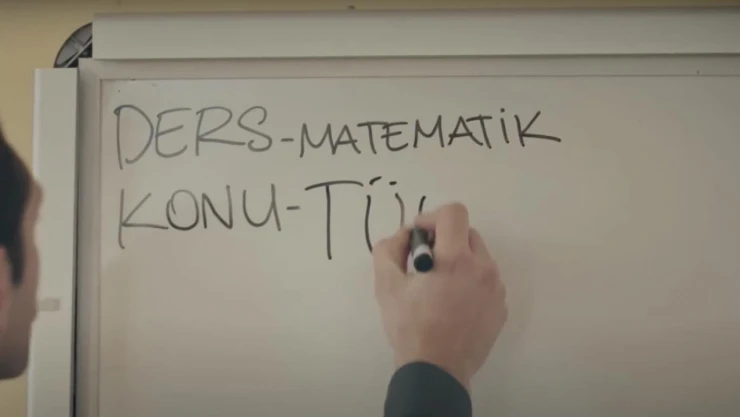 DERS-MATEMATİK
KONU-TÜ